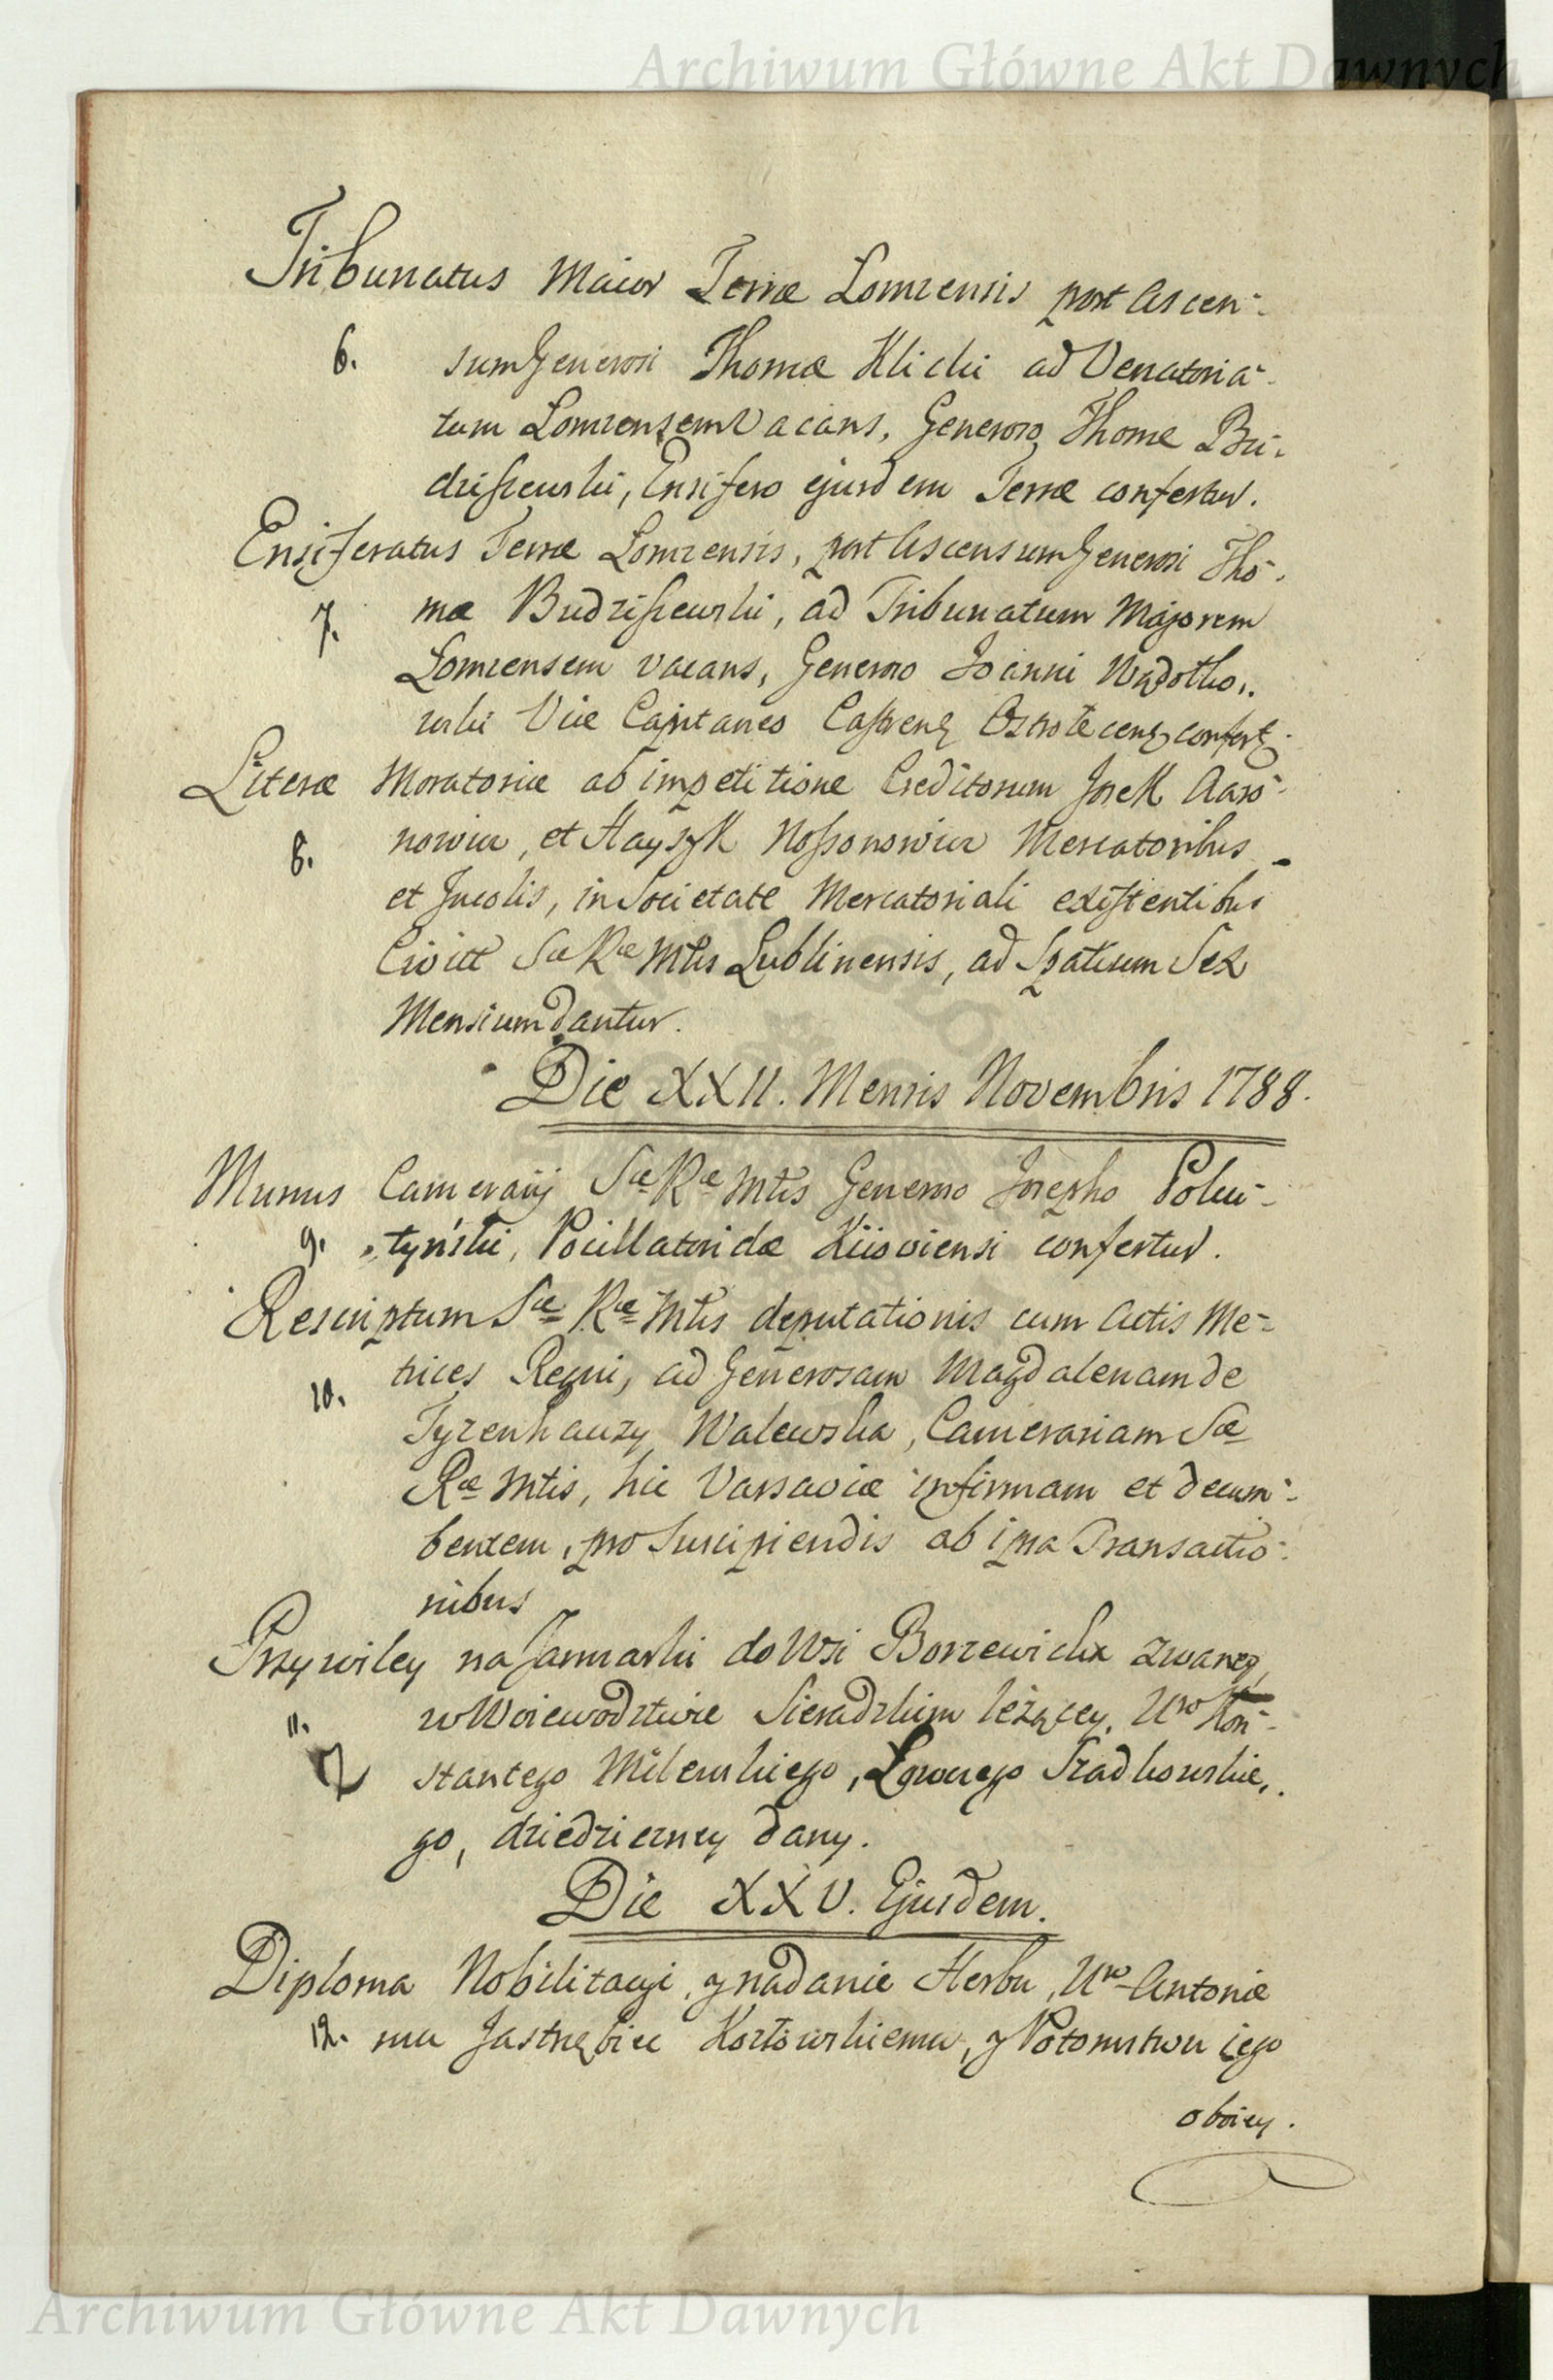 Archiwum Główne Akt Dawnych
Tribunatus Maior Terræ Lomzensis post Ascen-
6. sum Generosi Thomæ Klicki ad Venatoria-
tum Lomzensem Vacans, Generoso Thome Bu-
dziszewski, Ensifero ejusdem Terræ confertur.
Ensiferatus Terræ Lomzensis, post Ascensum Generosi Tho-
7. mæ Budziszewski, ad Tribunatum Majorem
Lomzensem vacans, Generoso Joanni Wądołko-
wski Vice Capitaneo Castrens confert
Literæ Moratoriæ ab impetitione Creditorum Josek Aaro-
8. nowicz, et Hayzyk Nossonowicz Mercatoribus
et Incolis, in Societate Mercatoriali existentibus
Civitt Sæ Ræ Mtis Lublinensis, ad Spatium Sex
Mensium dantur.
Die XXII. Mensis Novembris 1788.
Munus Camerarij Sæ Ræ Mtis Generoso Josepho Polu-
9. tyński, Pocillatoridæ Kiioviensi confertur.
Rescriptum Sæ Ræ Mtis deputationis cum Actis Me-
10. trices Regni, ad Generosam Magdalenam de
Tyzenhauzy Walewska, Camerariam Sæ
Ræ Mtis, hic Varsaviæ infirmam et decum-
bentem, pro Suscipiendis ab ipsa Transactio-
nibus
Przywiley na Jarmarki do Wsi Borzewickx zwaney,
11. w Woiewodztwie Sieradzkim leżącey, Uro Kon-
stantego Milewskiego, Łowczego Szadkowskie-
go, dziedziczney dany.
Die XXV. Ejusdem.
Diploma Nobilitacyi, y nadanie Herbu, Uro Antonie
12. mu Jastrzębiec Kozłowskiemu, y Potomstwu iego
oboiey.
Archiwum Główne Akt Dawnych